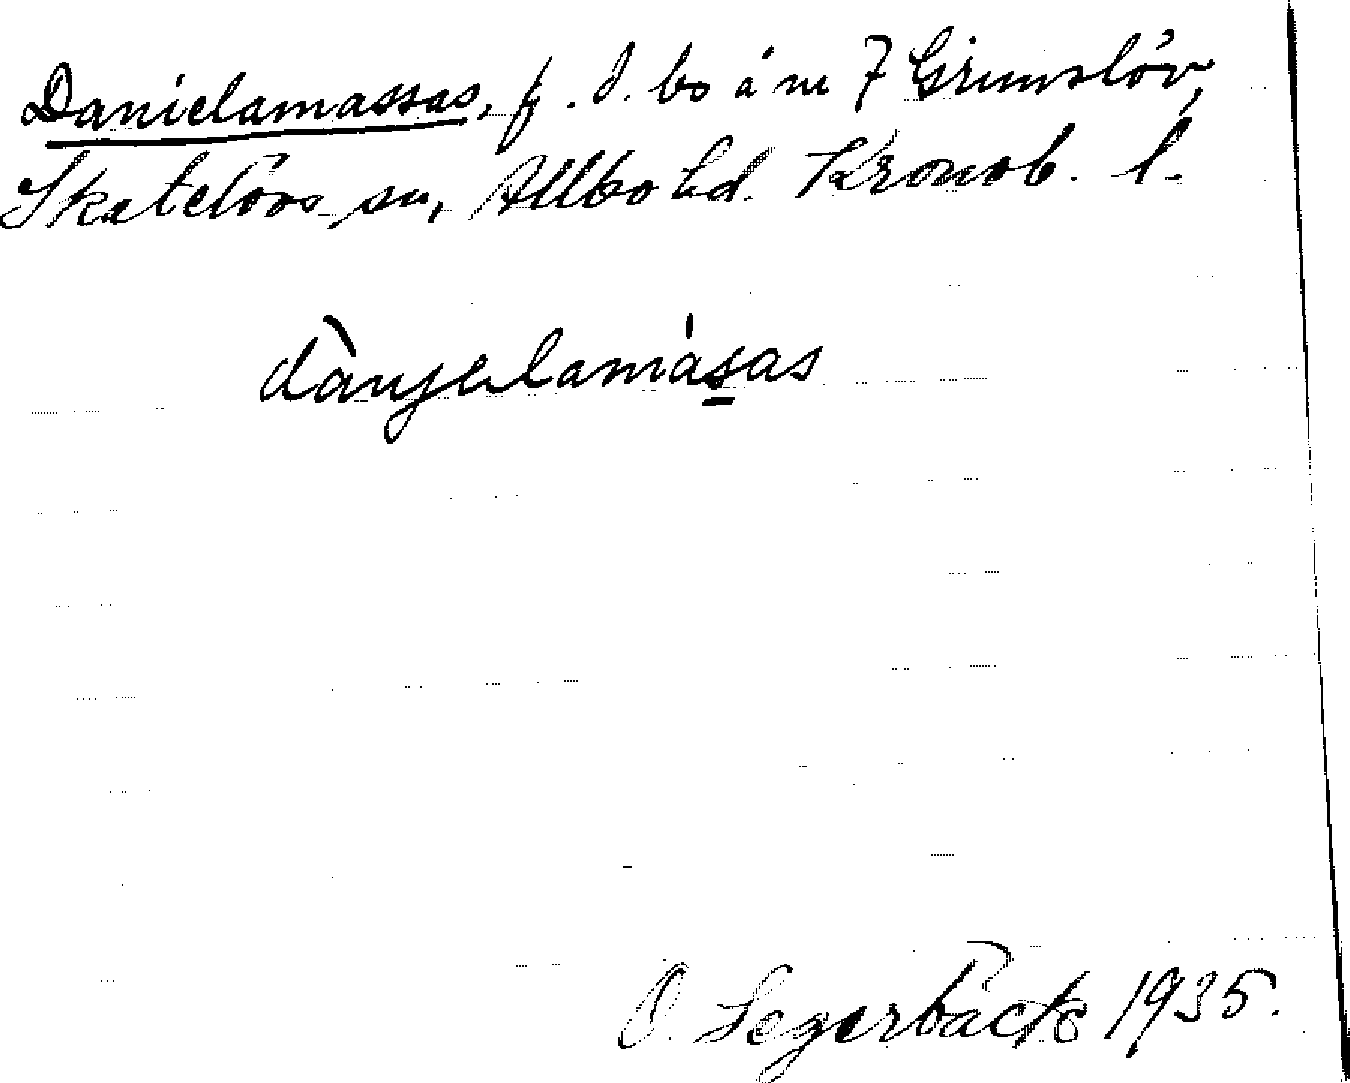 Danielamassas, f. d. bo å nr 7 Grimslöv,
Skatelövs sn, Allbo hd. Kronob. l.
dànjelamásas
O. Segerbäck 1935.